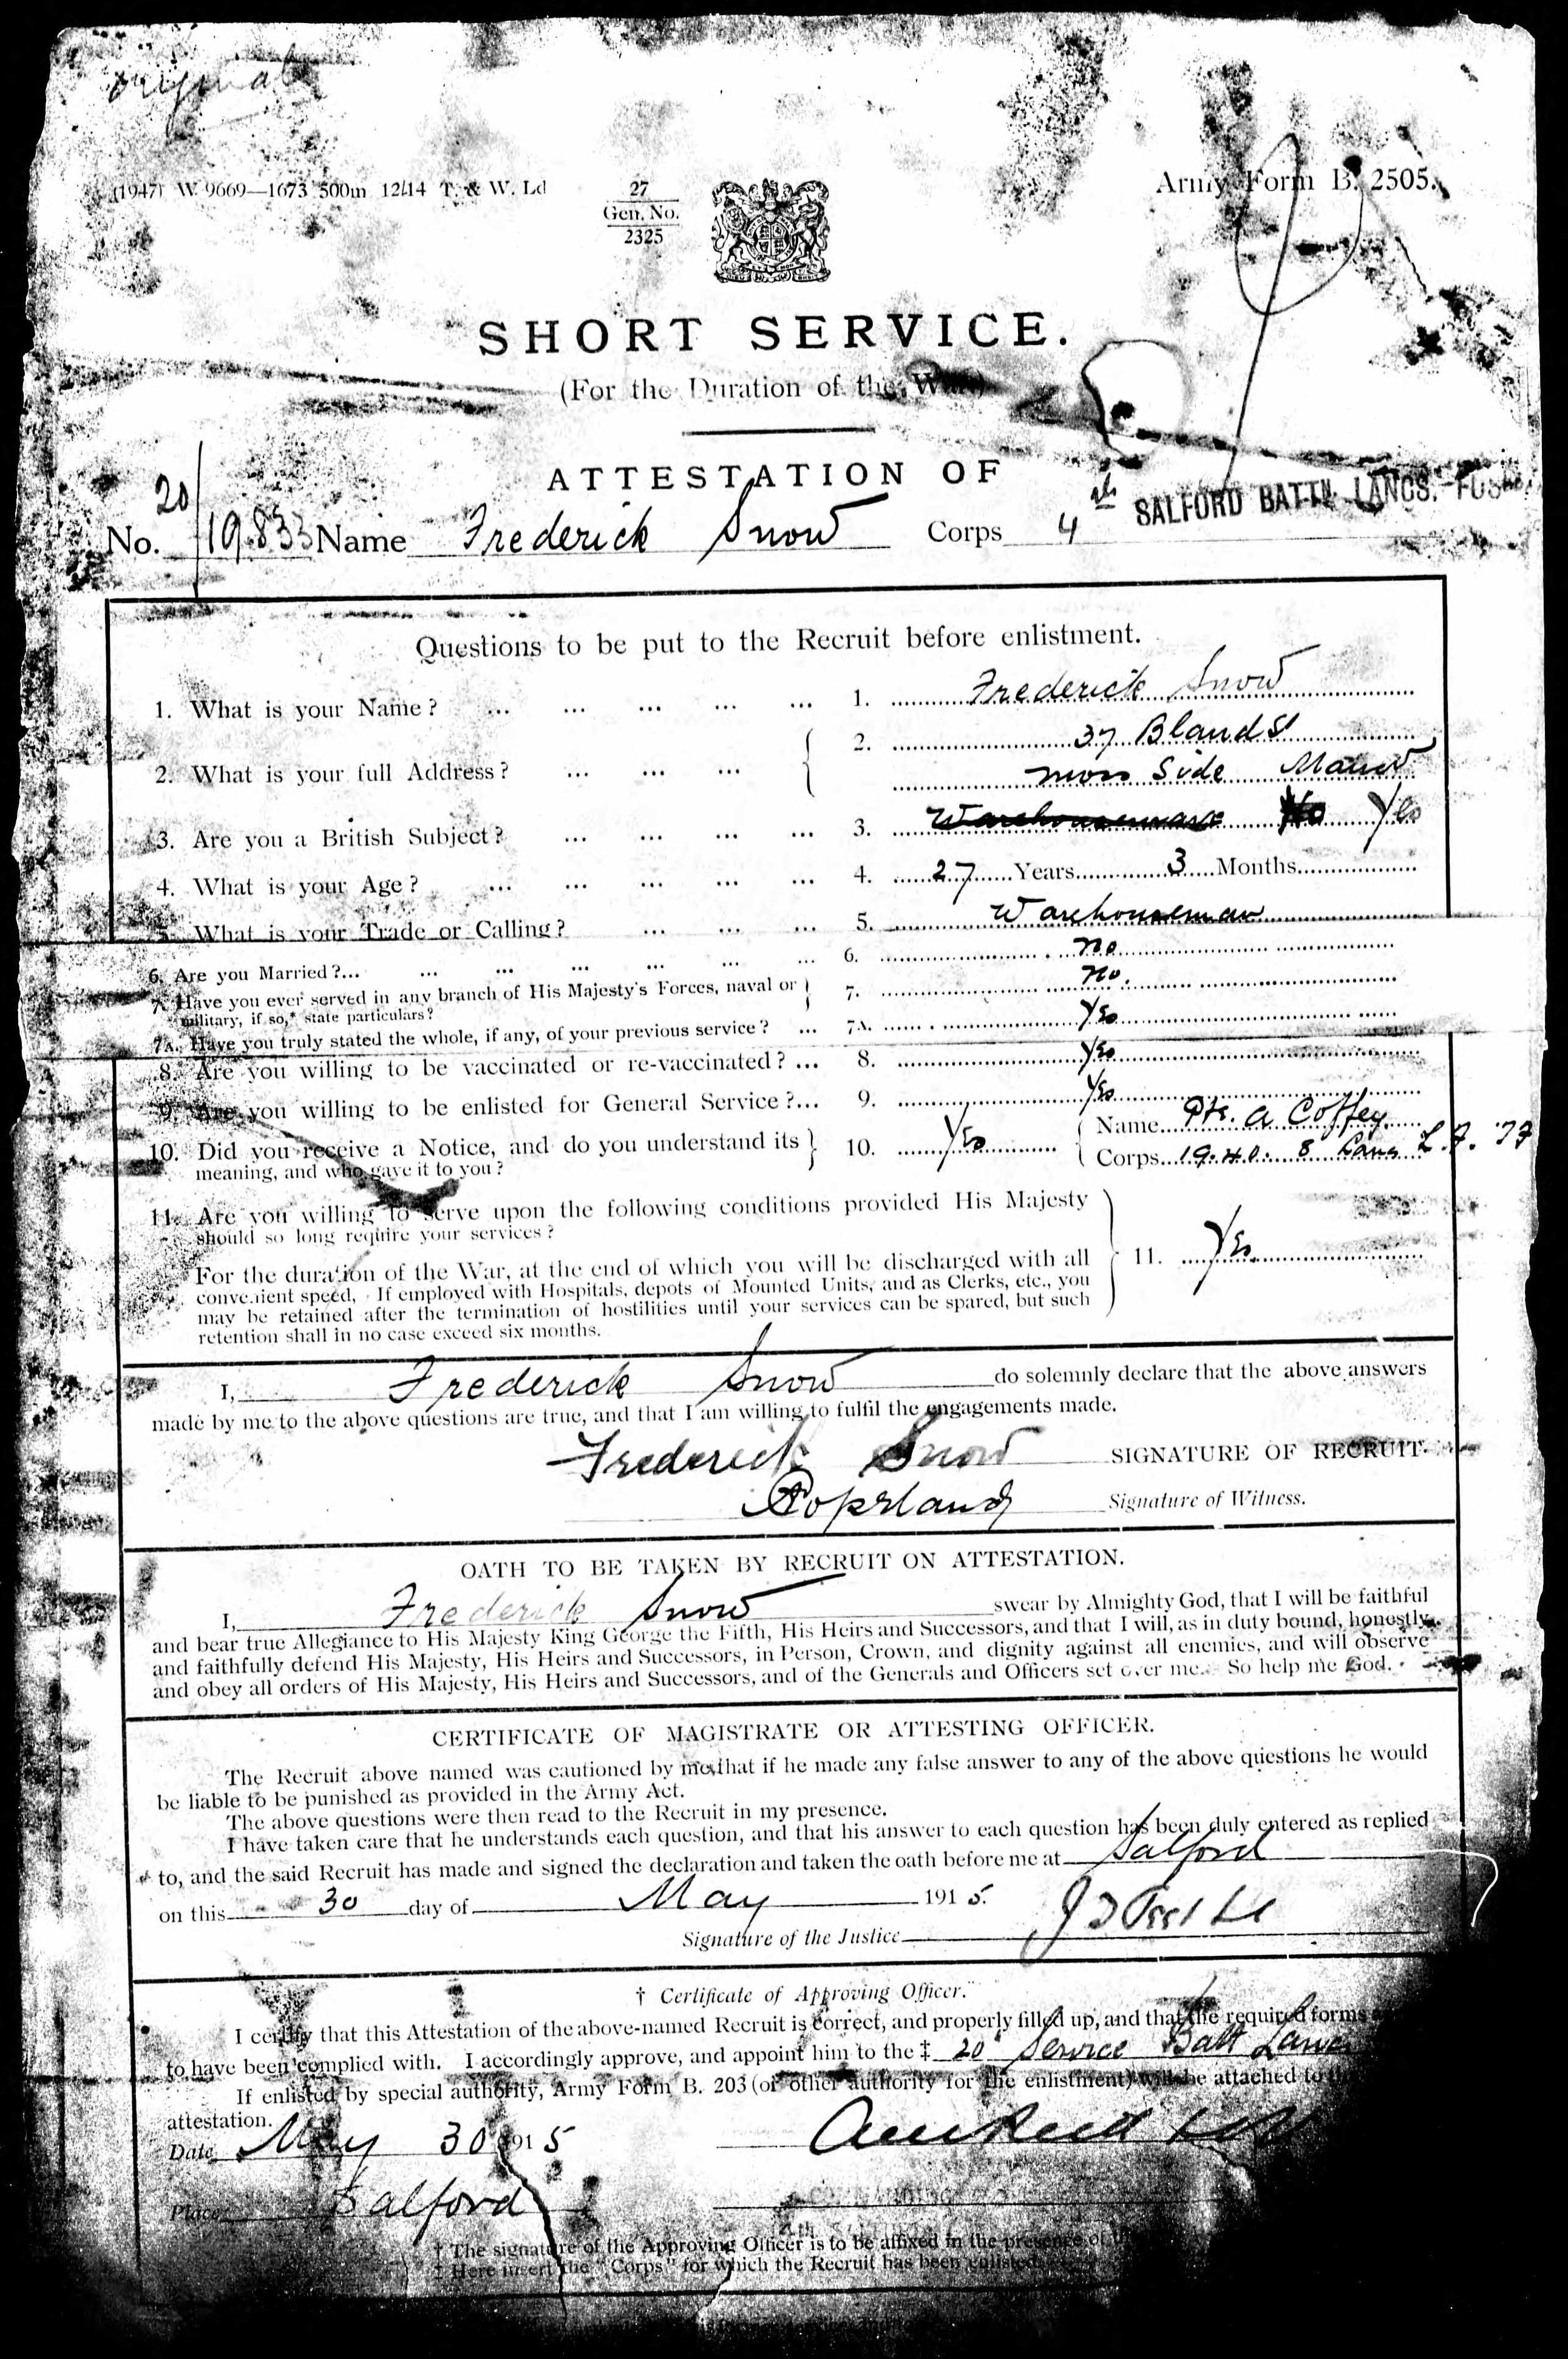 original
(1947) W 9669—1673 500m 12/14 T. & W. Ld
27
Gen. No.
2325
Army Form B. 2505.
SHORT SERVICE.
(For the Duration of the War)
ATTESTATION OF
No. 20/19833 Name Frederick Snow Corps 4th SALFORD BATTN. LANCS. FUS
Questions to be put to the Recruit before enlistment.
1. What is your Name? ... ... ... ... ... 1. Frederick Snow
2. What is your full Address? ... ... ... 2. 37 Bland St
Moss Side
3. Are you a British Subject? ... ... ... ... 3. Warehouseman No Yes
4. What is your Age? ... ... ... ... ... 4. 27 Years 3 Months
5. What is your Trade or Calling? ... ... ... 5. Warehouseman
6. Are you Married?... ... ... ... ... ... ... 6. no
7. Have you ever served in any branch of His Majesty's Forces, naval or 7. no.
military, if so,* state particulars?
7A. Have you truly stated the whole, if any, of your previous service? ... 7A. Yes
8. Are you willing to be vaccinated or re-vaccinated? ... 8. Yes
9. Are you willing to be enlisted for General Service?... 9. Yes
10. Did you receive a Notice, and do you understand its 10. Yes Name Pte. A Coffey
meaning, and who gave it to you? Corps 1940. 8 L.F.
11. Are you willing to serve upon the following conditions provided His Majesty
should so long require your services?
For the duration of the War, at the end of which you will be discharged with all 11. Yes
convenient speed, If employed with Hospitals, depots of Mounted Units, and as Clerks, etc., you
may be retained after the termination of hostilities until your services can be spared, but such
retention shall in no case exceed six months.
I, Frederick Snow do solemnly declare that the above answers
made by me to the above questions are true, and that I am willing to fulfil the engagements made.
Frederick Snow SIGNATURE OF RECRUIT
Copeland Signature of Witness.
OATH TO BE TAKEN BY RECRUIT ON ATTESTATION.
I, Frederick Snow swear by Almighty God, that I will be faithful
and bear true Allegiance to His Majesty King George the Fifth, His Heirs and Successors, and that I will, as in duty bound, honestly
and faithfully defend His Majesty, His Heirs and Successors, in Person, Crown, and dignity against all enemies, and will observe
and obey all orders of His Majesty, His Heirs and Successors, and of the Generals and Officers set over me. So help me God.
CERTIFICATE OF MAGISTRATE OR ATTESTING OFFICER.
The Recruit above named was cautioned by me that if he made any false answer to any of the above questions he would
be liable to be punished as provided in the Army Act.
The above questions were then read to the Recruit in my presence.
I have taken care that he understands each question, and that his answer to each question has been duly entered as replied
to, and the said Recruit has made and signed the declaration and taken the oath before me at Salford
on this 30 day of May 1915.
Signature of the Justice
† Certificate of Approving Officer.
I certify that this Attestation of the above-named Recruit is correct, and properly filled up, and that the required forms
to have been complied with. I accordingly approve, and appoint him to the ‡ 20 Service Batt
If enlisted by special authority, Army Form B. 203 (or other authority for the enlistment) will be attached to the
attestation.
Date May 30 1915
Place Salford
† The signature of the Approving Officer is to be affixed in the presence of
‡ Here insert the "Corps" for which the Recruit has been enlisted.